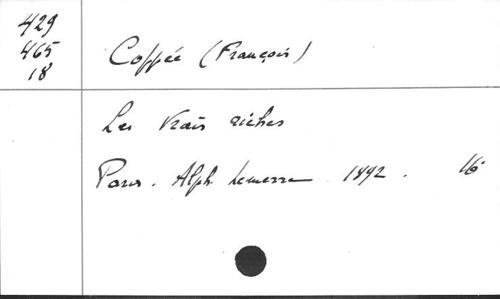 429
465
18
Coppée (François)
Les Vrais riches
Paris. Alph. Lemerre 1892. 16°